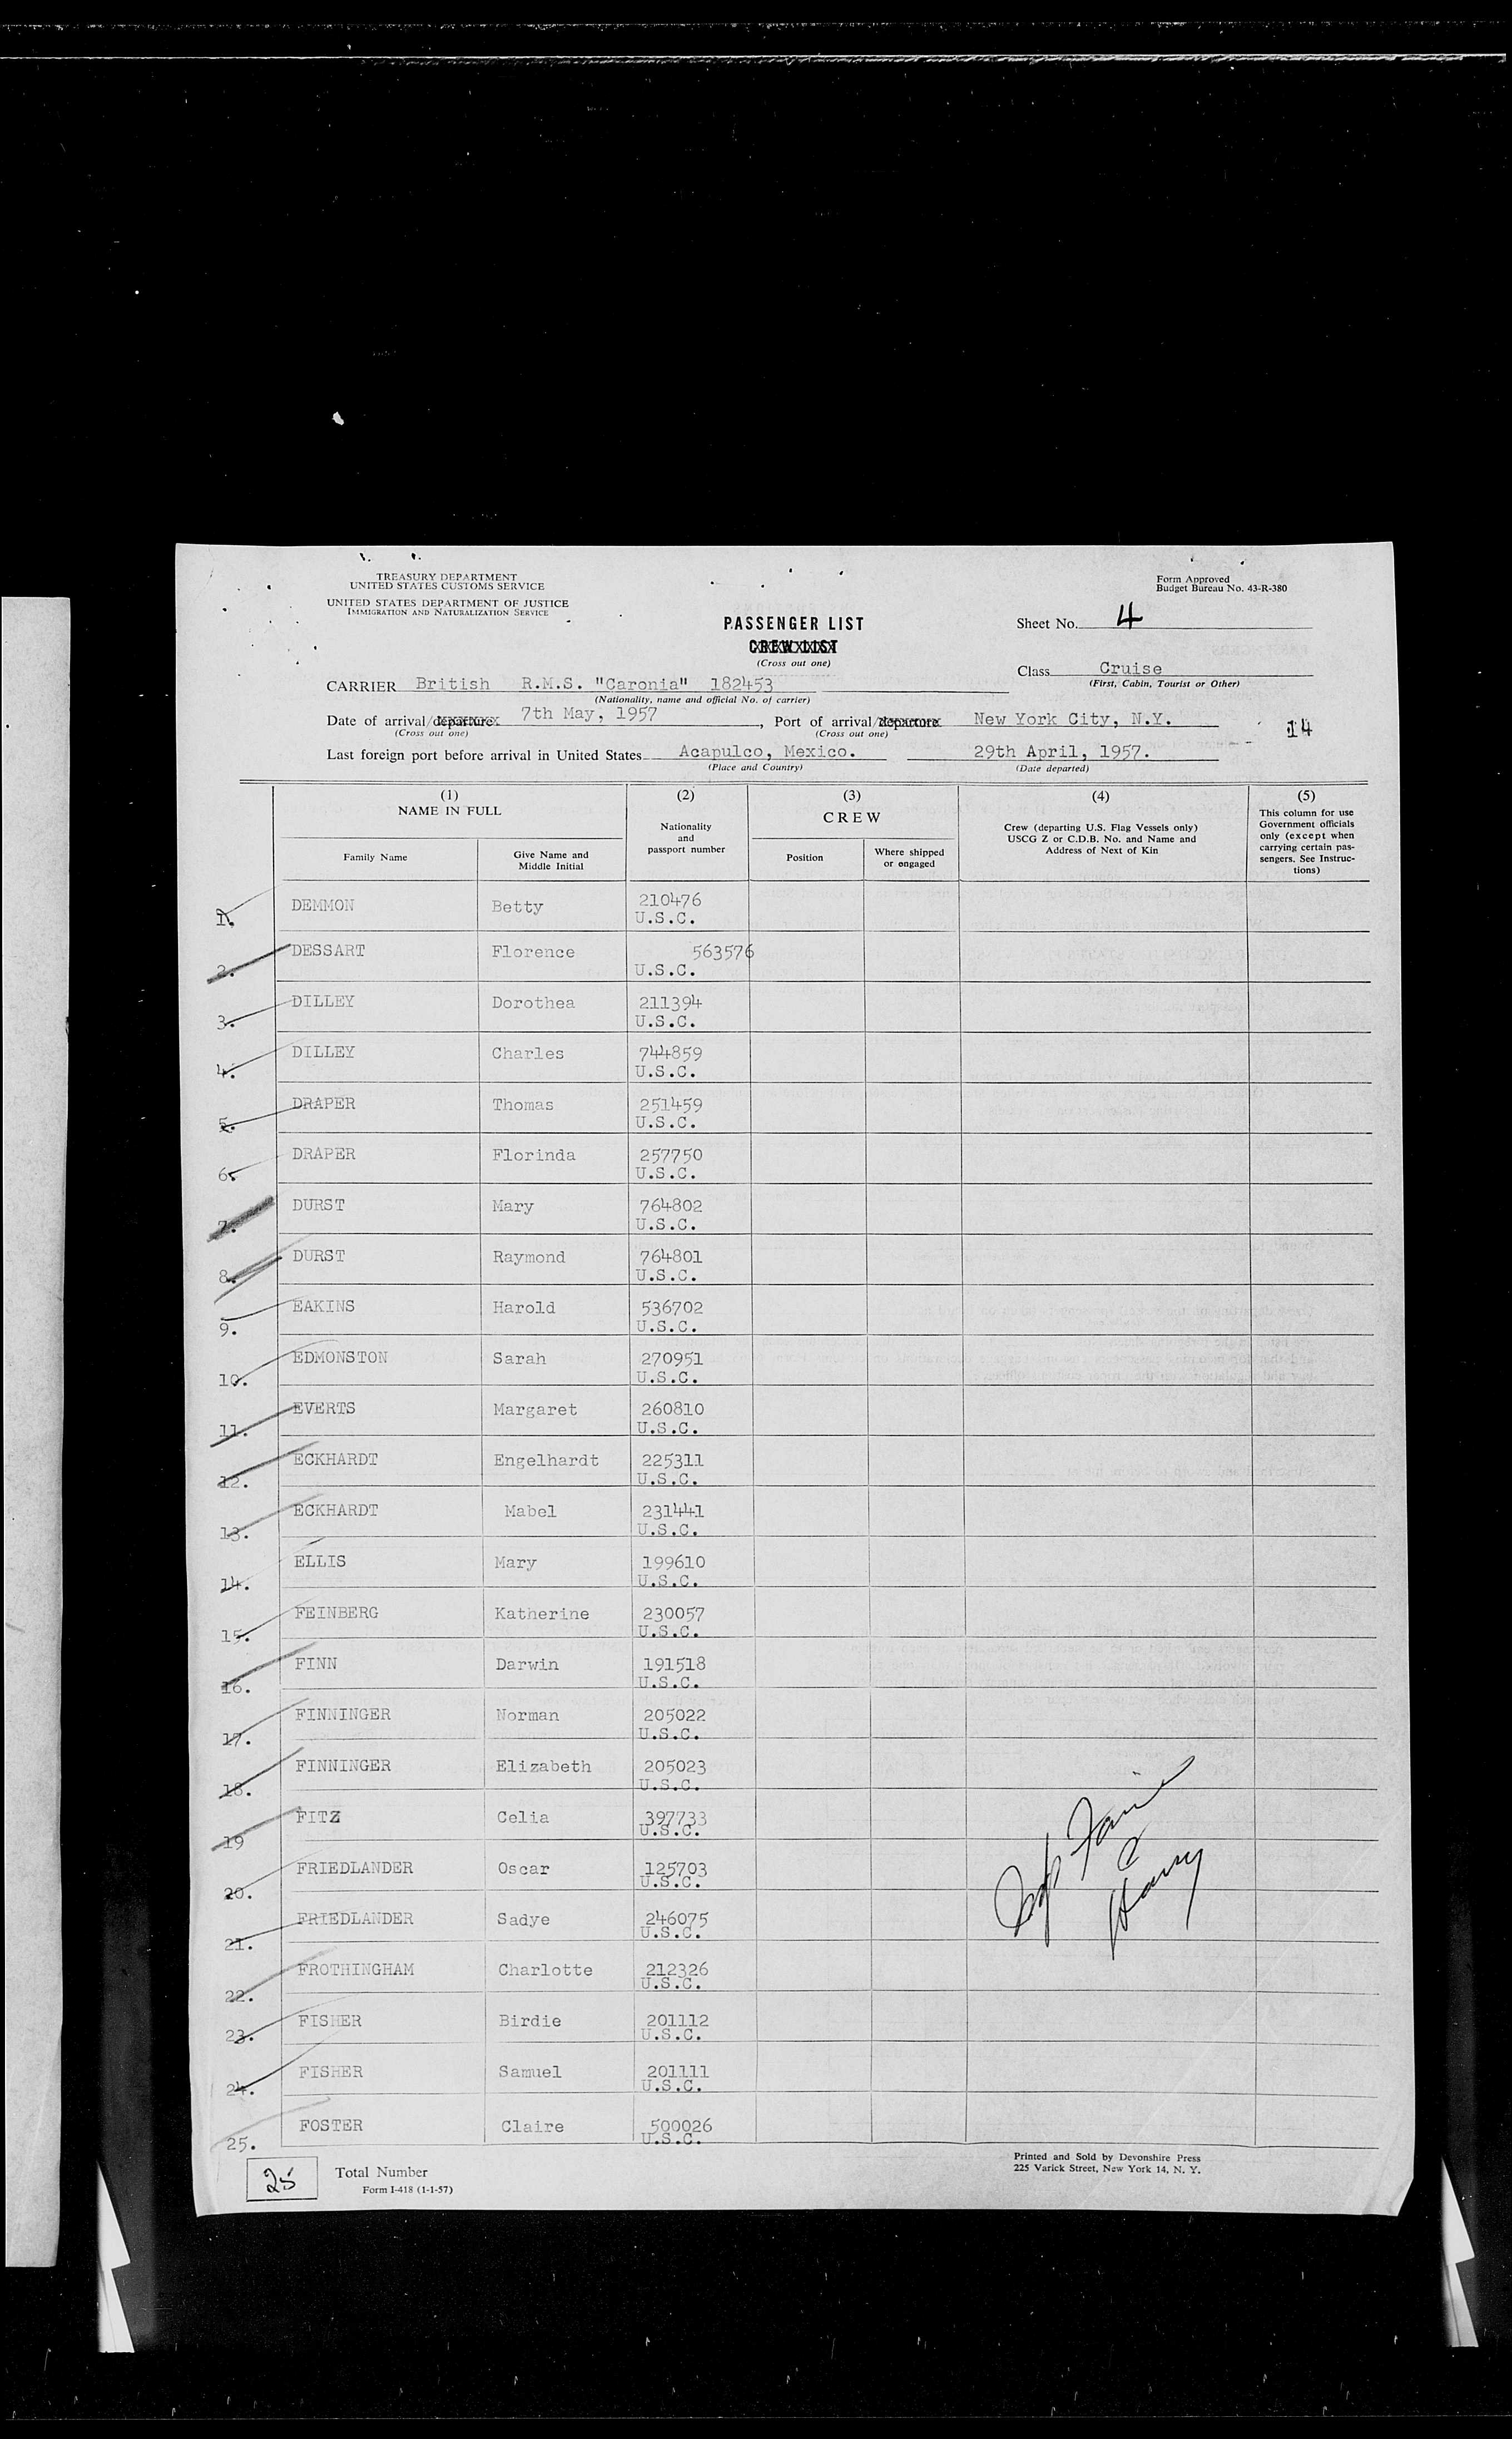 TREASURY DEPARTMENT
UNITED STATES CUSTOMS SERVICE
UNITED STATES DEPARTMENT OF JUSTICE
IMMIGRATION AND NATURALIZATION SERVICE
Form Approved
Budget Bureau No. 43-R-380
PASSENGER LIST
CREW LIST
(Cross out one)
Sheet No. 4
Class Cruise
(First, Cabin, Tourist or Other)
CARRIER British R.M.S. "Caronia" 182453
(Nationality, name and official No. of carrier)
Date of arrival/departure 7th May, 1957, Port of arrival/departure New York City, N.Y.
(Cross out one) (Cross out one)
14
Last foreign port before arrival in United States Acapulco, Mexico. 29th April, 1957.
(Place and Country) (Date departed)
(1) (2) (3) (4) (5)
NAME IN FULL
Family Name
Give Name and Middle Initial
Nationality and passport number
CREW
Position
Where shipped or engaged
Crew (departing U.S. Flag Vessels only)
USCG Z or C.D.B. No. and Name and
Address of Next of Kin
This column for use
Government officials
only (except when
carrying certain pas-
sengers. See Instruc-
tions)
1. DEMMON Betty 210476
U.S.C.
2. DESSART Florence 563576
U.S.C.
3. DILLEY Dorothea 211394
U.S.C.
4. DILLEY Charles 744859
U.S.C.
5. DRAPER Thomas 251459
U.S.C.
6. DRAPER Florinda 257750
U.S.C.
7. DURST Mary 764802
U.S.C.
8. DURST Raymond 764801
U.S.C.
9. EAKINS Harold 536702
U.S.C.
10. EDMONSTON Sarah 270951
U.S.C.
11. EVERTS Margaret 260810
U.S.C.
12. ECKHARDT Engelhardt 225311
U.S.C.
13. ECKHARDT Mabel 231441
U.S.C.
14. ELLIS Mary 199610
U.S.C.
15. FEINBERG Katherine 230057
U.S.C.
16. FINN Darwin 191518
U.S.C.
17. FINNINGER Norman 205022
U.S.C.
18. FINNINGER Elizabeth 205023
U.S.C.
19 FITZ Celia 397733
U.S.C.
20. FRIEDLANDER Oscar 125703
U.S.C.
21. FRIEDLANDER Sadye 246075
U.S.C.
22. FROTHINGHAM Charlotte 212326
U.S.C.
23. FISHER Birdie 201112
U.S.C.
24. FISHER Samuel 201111
U.S.C.
25. FOSTER Claire 500026
U.S.C.
Harry
25 Total Number
Form I-418 (1-1-57)
Printed and Sold by Devonshire Press
225 Varick Street, New York 14, N. Y.